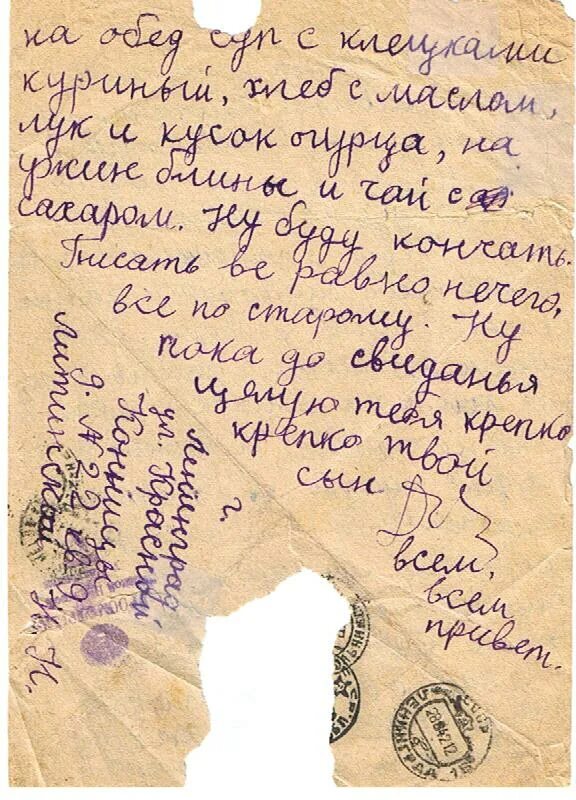 на обед суп с клецками
куриный, хлеб с маслом,
лук и кусок огурца, на
ужин блины и чай с
сахаром. Ну буду кончать.
Писать ве равно нечего,
все по старому. Ну
пока до свиданья
целую тебя крепко
крепко твой
сын
всем,
всем
привет.
г. Ленинград
ул. Красной
Конницы
д. N 22 кв 9
Литинской Н. Н.
СССР
ЛЕНИНГРАД